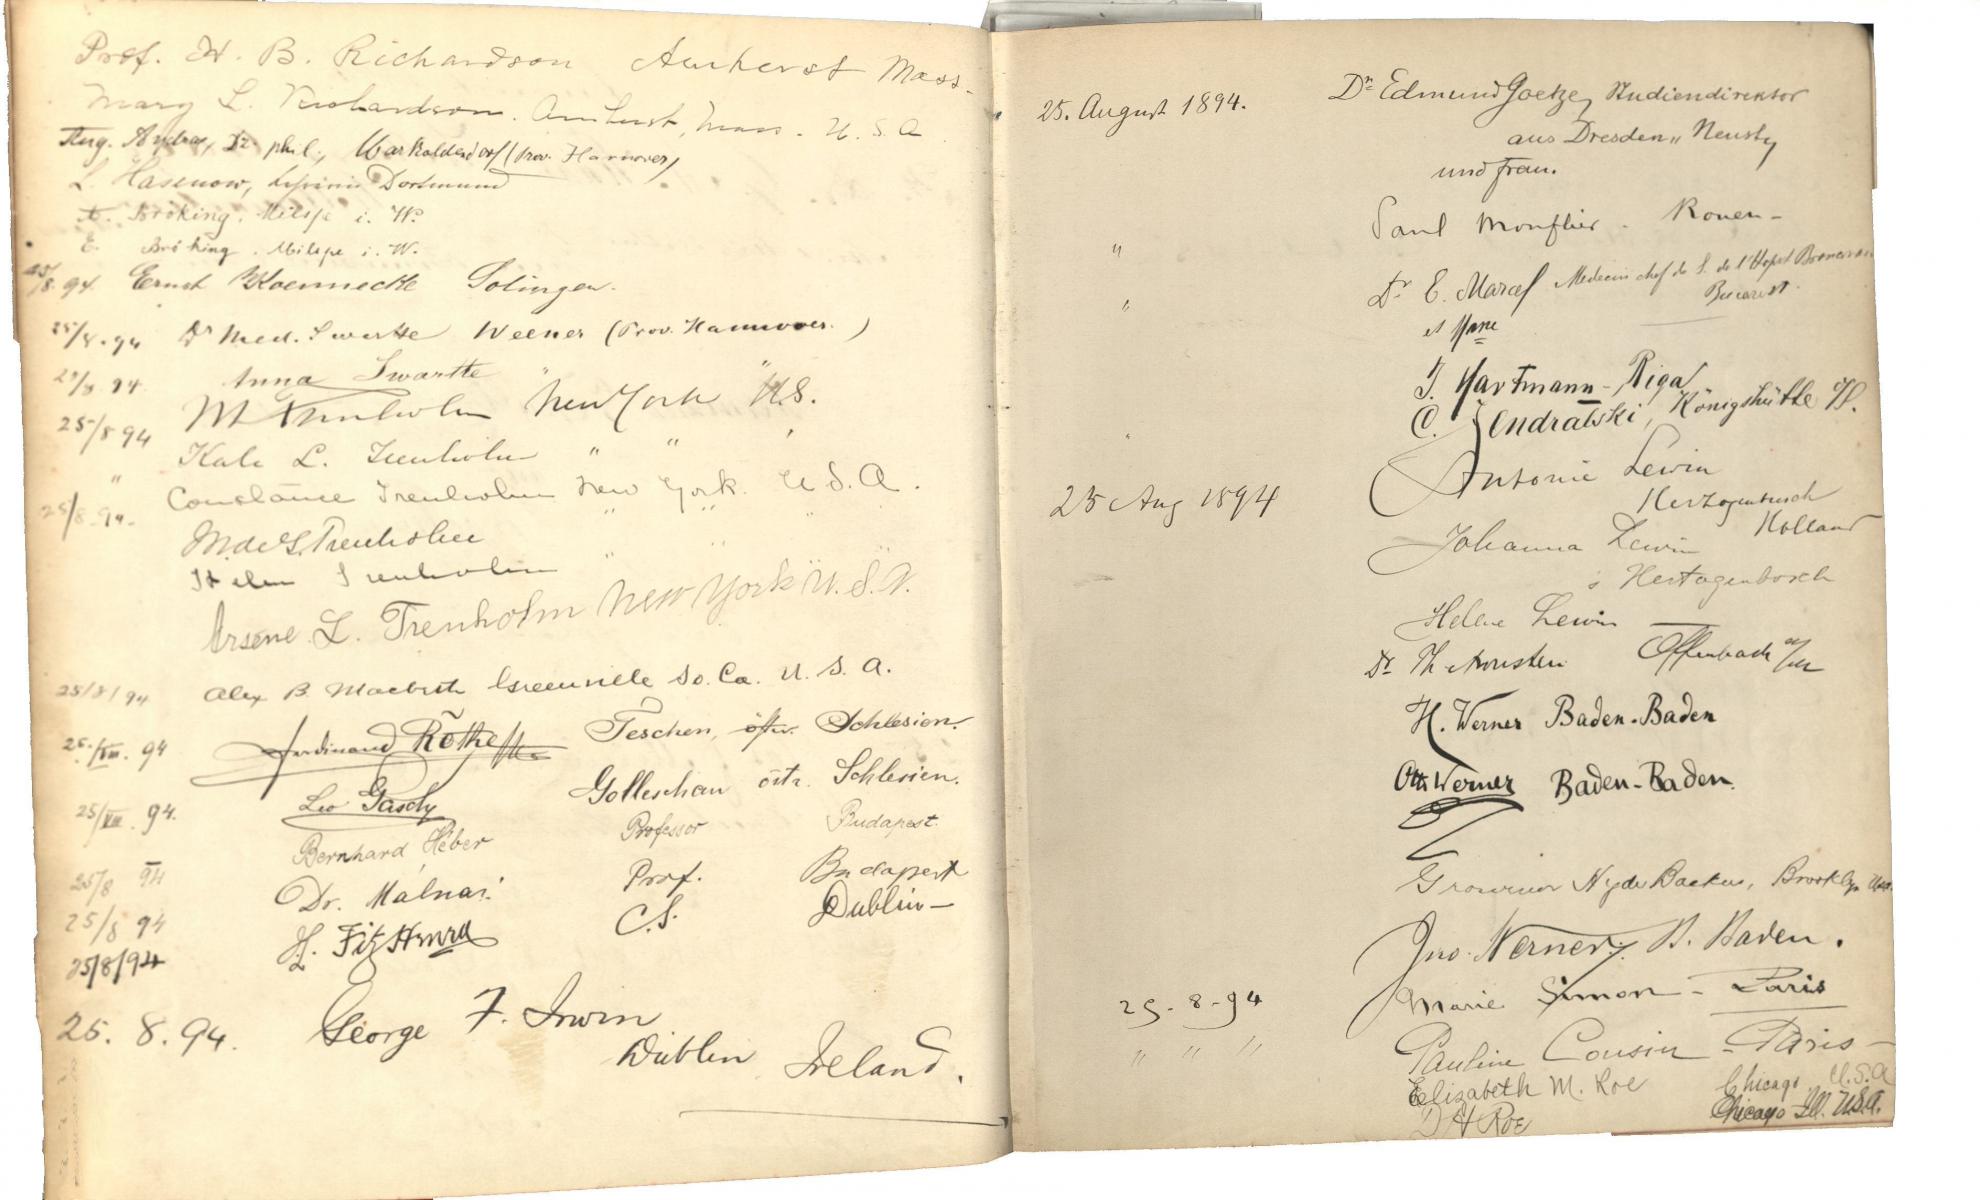 Prof. H. B. Richardson Amherst Mass.
Mary L. Richardson. Amherst, Mass. U.S.A
Aug. Andrae, Dr phil., (Prov. Hannover)
L. Hasenow, Dortmund
A. Bröking, Milspe i. W.
E. Bröking. Milspe i. W.
25/8. 94 Ernst Koennecke Solingen.
25/8.94 Dr Med. Swartte Weener (Prov. Hannover.)
25/8 94. Anna Swartte "
25/8 94 M Trenholm New York U.S.
" Kate L. Trenholm " "
25/8.94. Constance Trenholm New York. U.S.A.
M. de S. Trenholm " " "
Helen Trenholm " " "
Arsène L. Trenholm New York U.S.A.
25/8/94 Alex B. Macbeth Greenville So. Ca. U.S.A.
25./VIII. 94 Ferdinand Rothe Teschen, östr. Schlesien.
25/VIII. 94. Leo Gasch Golleschau östr. Schlesien.
Bernhard Héber Professor Budapest.
25/8 94 Dr. Málnai Prof. Budapest
25/8 94 H. FitzHenry C.S. Dublin—
25/8/94
25. 8. 94. George F. Irwin
Dublin Ireland.
25. August 1894. Dr Edmund Goetze, Studiendirektor
aus Dresden, Neust,
und Frau.
" Paul Monflier. Rouen—
" Dr E. Marcel Medecin chef de S. de l'Hopit
Bucarest.
et Mme
J. Hartmann - Riga
" C. Jendralski, Königshütte
25 Aug 1894 Antonie Lewin
Hertzogenbusch
Holland
Johanna Lewin
s Hertogenbosch
Helene Lewin
Dr Th Offenbach a/M
H. Werner Baden-Baden
Otto Werner Baden-Baden.
Grosvenor Hyde Backus, Brooklyn
Jno. Werner, B. Baden.
25-8-94 Marie Simon - Paris
" " " Pauline Cousin - Paris—
Elizabeth M. Roe Chicago U.S.A
D H Roe Chicago Ill. U.S.A.